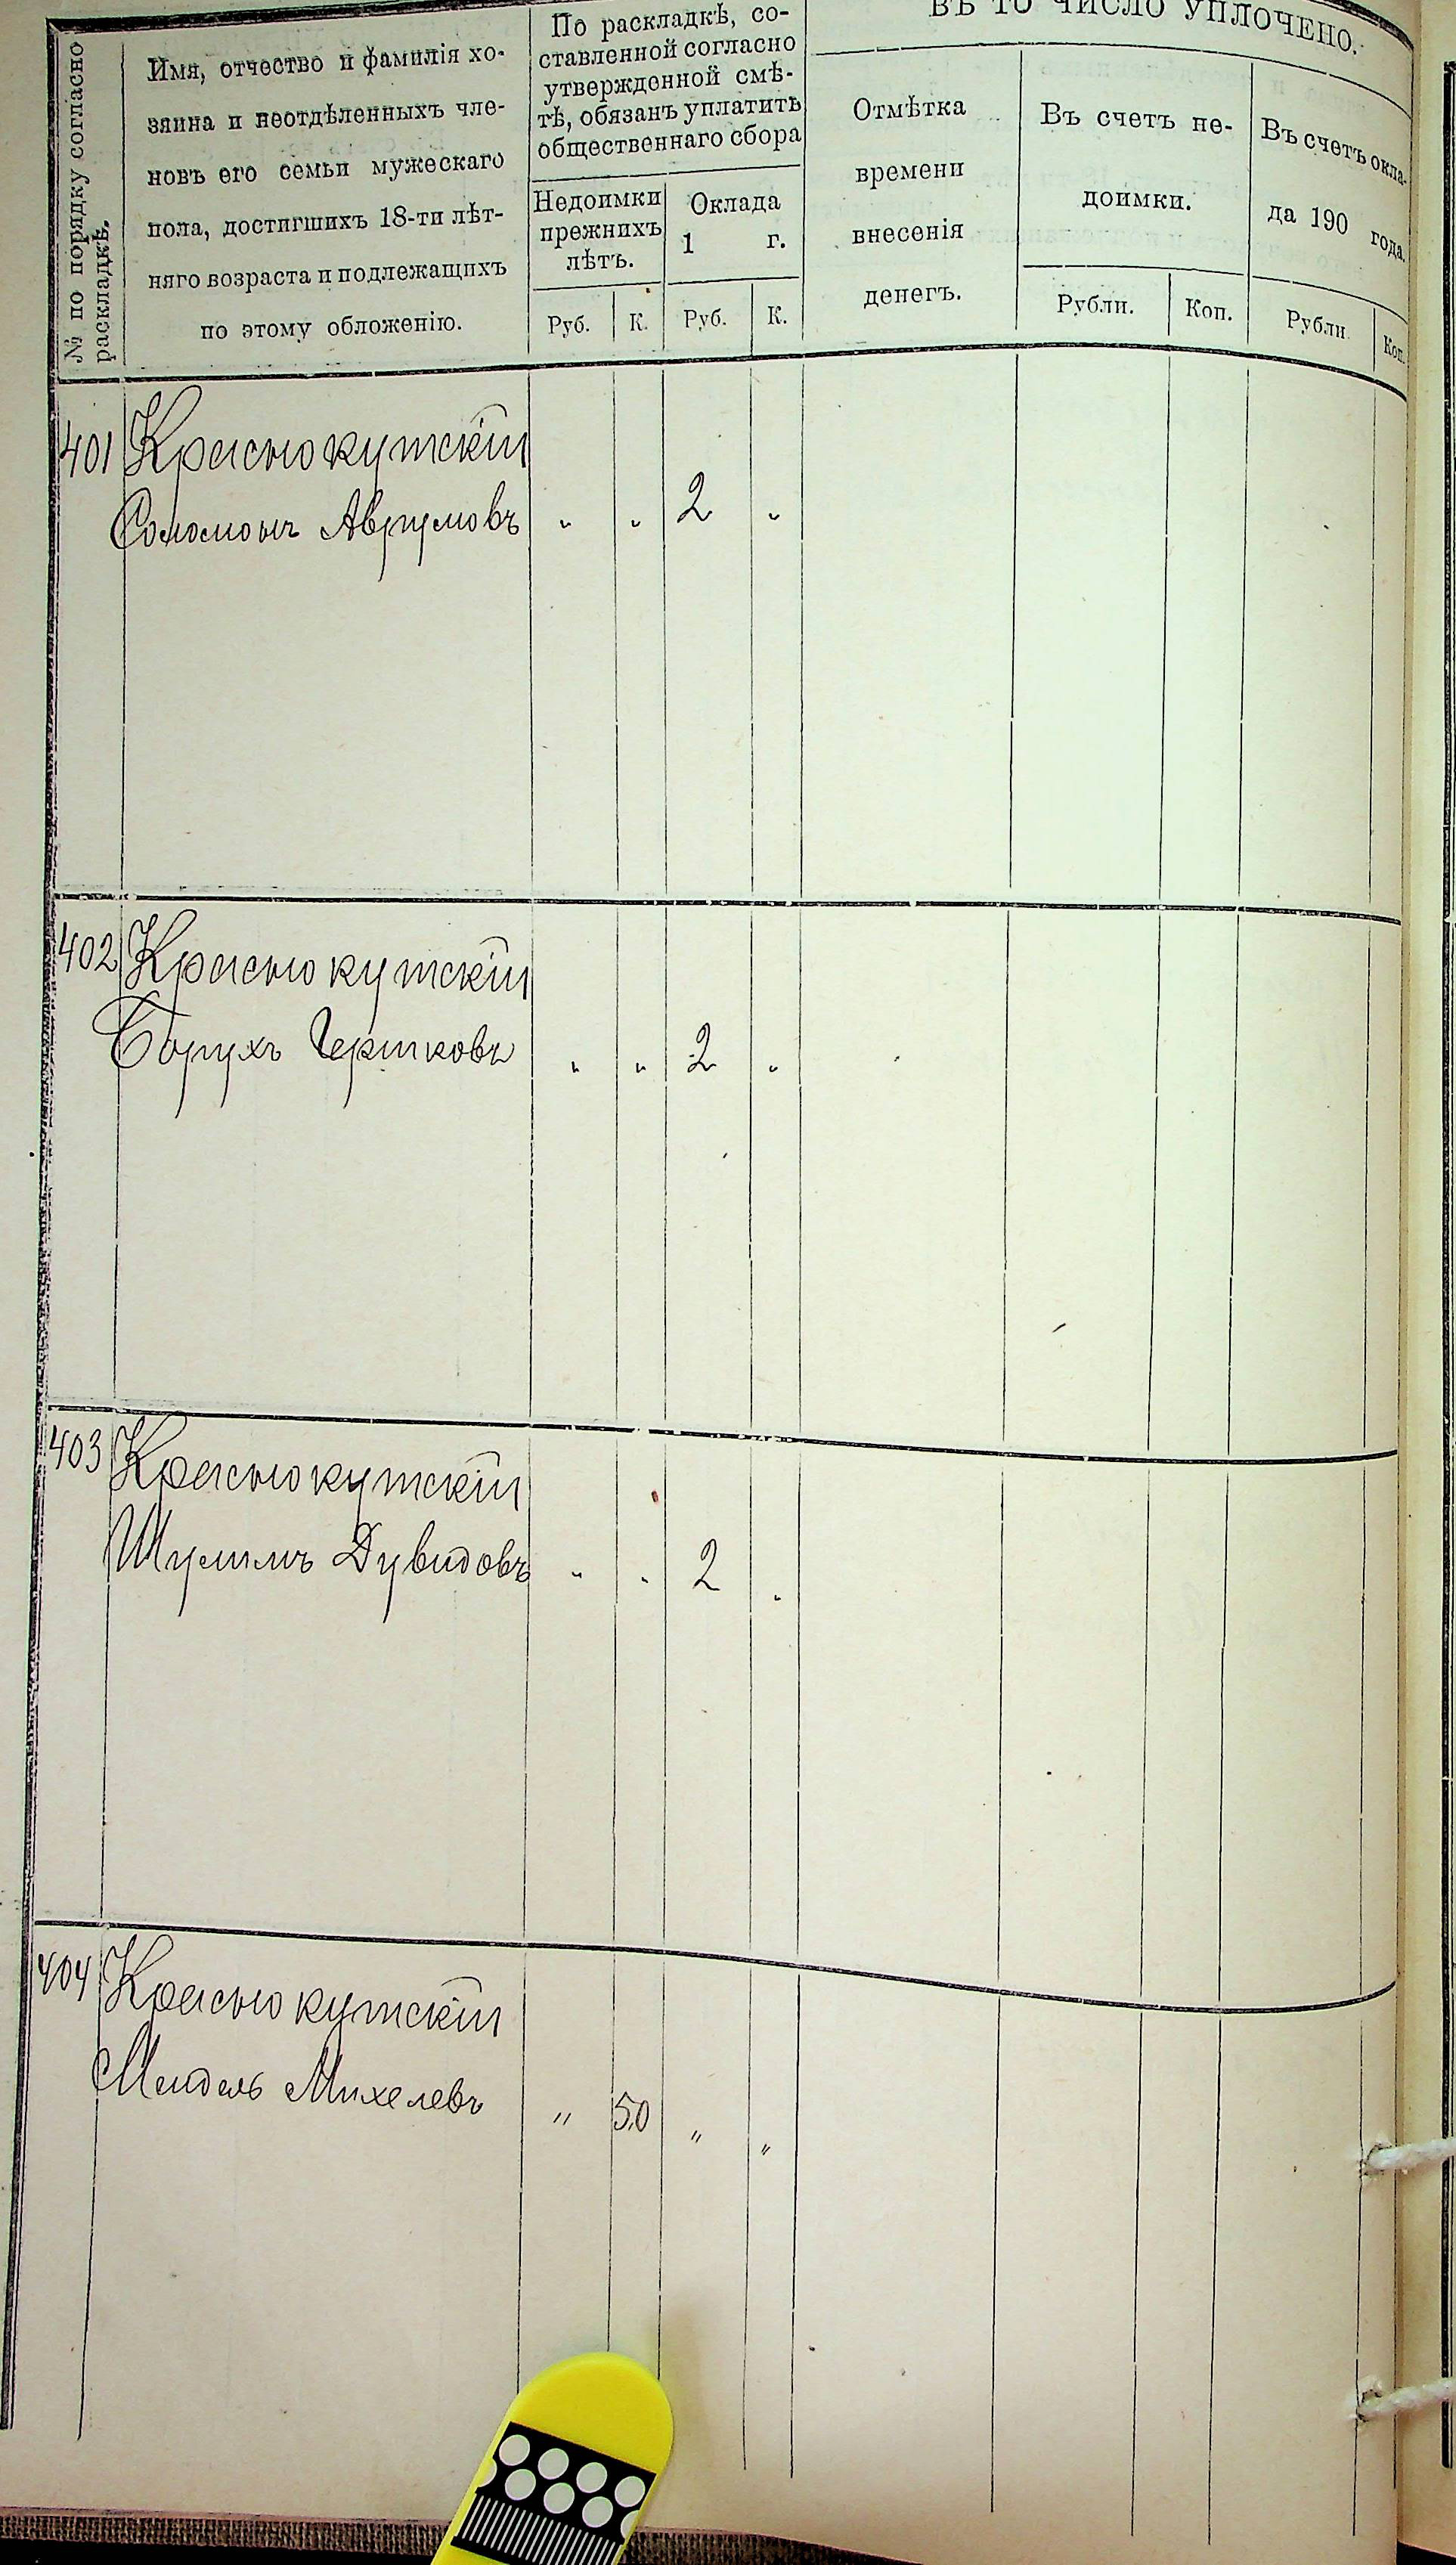 № по порядку согласно
раскладкѣ.
Имя, отчество и фамилія хо-
зяина и неотдѣленныхъ чле-
новъ его семьи мужескаго
пола, достигшихъ 18-ти лѣт-
няго возраста и подлежащихъ
по этому обложенію.
По раскладкѣ, со-
ставленной согласно
утвержденной смѣ-
тѣ, обязанъ уплатить
общественнаго сбора
Недоимки
прежнихъ
лѣтъ.
Руб. К.
Оклада
1 г.
Руб. К.
ВЪ ТО ЧИСЛО УПЛОЧЕНО.
Отмѣтка
времени
внесенія
денегъ.
Въ счетъ не-
доимки.
Рубли. Коп.
Въ счетъ окла-
да 190 года.
Рубли Коп.
401 Краснокутскій
Соломонъ Аврумовъ " " 2 "
402 Краснокутскій
Борухъ Гершковъ " " 2 "
403 Краснокутскій
Шулимъ Дувидовъ " " 2 "
404 Краснокутскій
Мендель Михелевъ " 50 " "